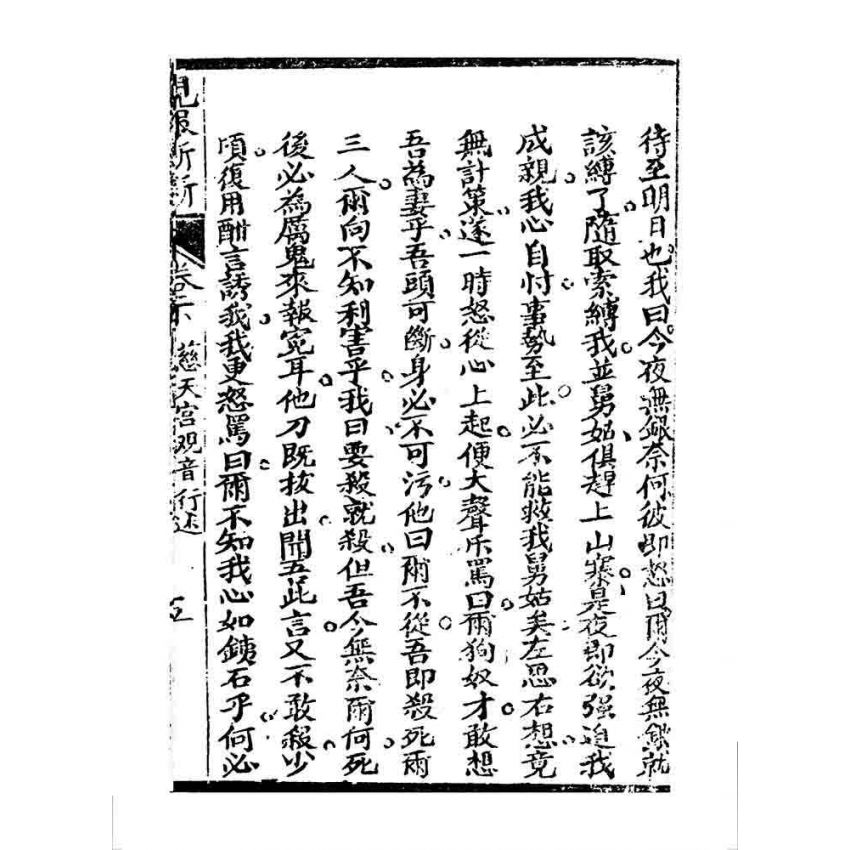 待至明日也我曰今夜無銀奈何彼即怒曰爾今夜無銀就
該縛了隨取索縛我並舅姑俱趕上山寨是夜即欲强迫我
成親我心自忖事勢至此必不能救我舅姑矣左思右想竟
無計策遂一時怒從心上起便大聲斥罵曰爾狗奴才敢想
吾為妻乎吾頭可斷身必不可污他曰爾不從吾即殺死爾
三人爾向不知利害乎我曰要殺就殺但吾今無奈爾何死
後必為厲鬼來報寃耳他刀既拔出聞吾此言又不敢殺少
頃復用酣言誘我我更怒罵曰爾不知我心如鐵石乎何必
現報新新 卷下 慈天宫观音行述 五